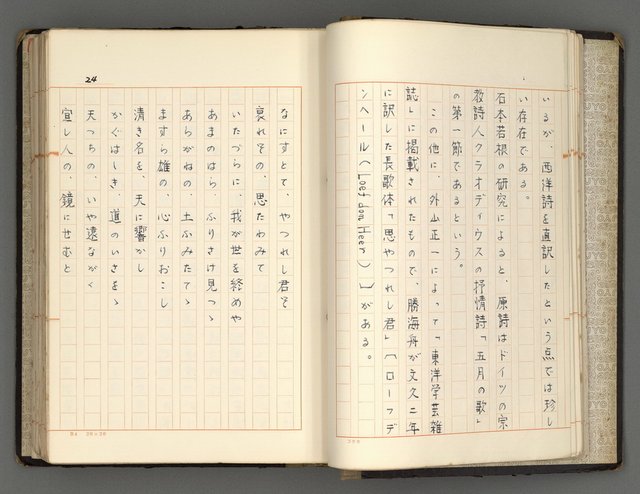 いるが、西洋詩を直訳したという点では珍し
い存在である。
石本岩根の研究によると、原詩はドイツの宗
教詩人クラオディウスの抒情詩「五月の歌」
の第一節であるという。
この他に、外山正一によって「東洋学芸雑
誌」に掲載されたもので、勝海舟が文久二年
に訳した長歌体「思やつれし君」〔ローフデ
ンヘール(Loef don Heer)〕がある。
24
なにすとて、やつれし君ぞ
哀れその、思たわみて
いたづらに、我が世を終めや
あまのはら、ふりさけ見つゝ
あらがねの、土ふみたてゝ
ますら雄の、心ふりおこし
清き名を、天に響かし
かぐはしき 道のいさをゝ
天つちの、いや遠ながく
宣し人の、鏡にせむと
B4 20×20